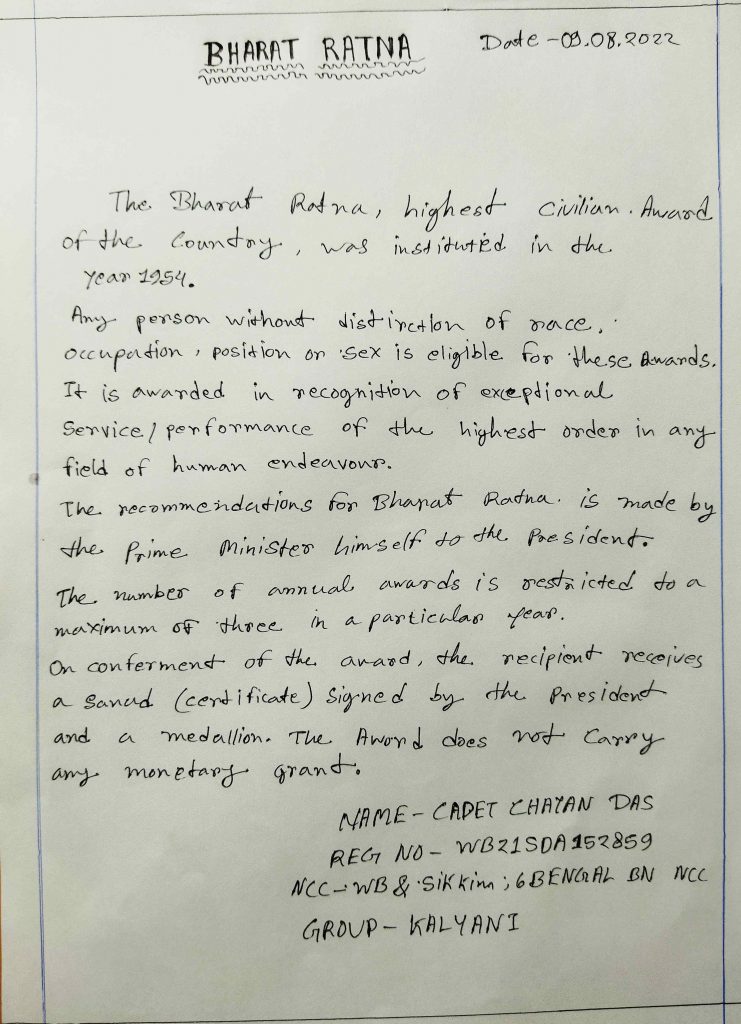 BHARAT RATNA
Date - 09.08.2022
The Bharat Ratna, highest civilian. Award
of the Country, was instituted in the
year 1954.
Any person without distinction of race,
occupation, position or sex is eligible for these Awards.
It is awarded in recognition of exceptional
Service/performance of the highest order in any
field of human endeavour.
The recommendations for Bharat Ratna. is made by
the Prime Minister himself to the President.
The number of annual awards is restricted to a
maximum of three in a particular year.
On conferment of the award, the recipient receives
a Sanad (certificate) Signed by the President
and a medallion. The Award does not Carry
any monetary grant.
NAME - CADET CHAYAN DAS
REG NO - WB21SDA152859
NCC - WB & Sikkim ; 6 BENGAL BN NCC
GROUP - KALYANI